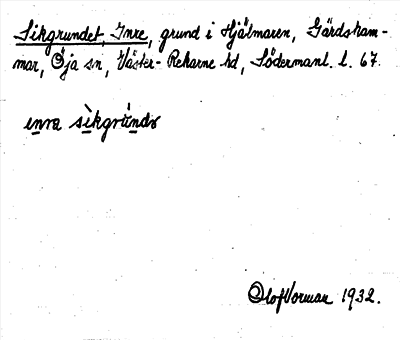 Sikgrundet, Inre, grund i Hjälmaren, Gärdsham-
mar, Öja sn, Väster-Rekarne hd, Södermanl. l. 67.
Olof Vorman 1932.